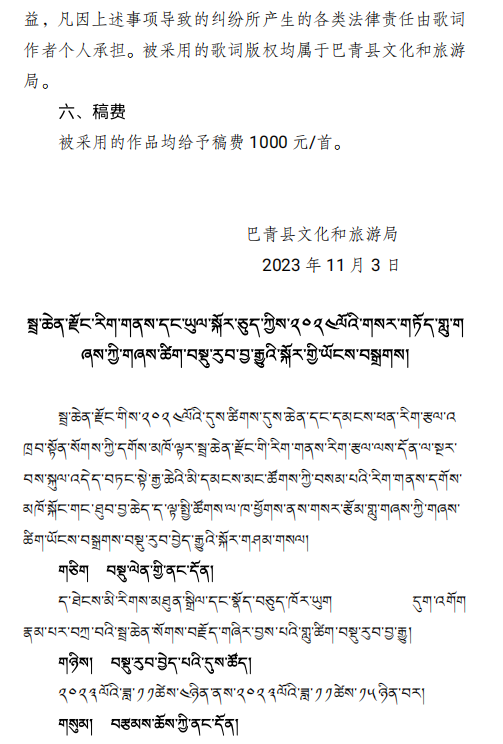 益，凡因上述事项导致的纠纷所产生的各类法律责任由歌词
作者个人承担。被采用的歌词版权均属于巴青县文化和旅游
局。
六、稿费
被采用的作品均给予稿费 1000 元/首。
巴青县文化和旅游局
2023 年 11 月 3 日
སྦྲ་ཆེན་རྫོང་རིག་གནས་དང་ཡུལ་སྐོར་ཅུད་ཀྱིས་༢༠༢༤ལོའི་གསར་གཏོད་གླུ་ག
ཞས་ཀྱི་གཞས་ཚིག་བསྡུ་རུབ་བྱ་རྒྱུའི་སྐོར་གྱི་ཡོངས་བསྒྲགས།
སྦྲ་ཆེན་རྫོང་གིས་༢༠༢༤ལོའི་དུས་ཚིགས་དུས་ཆེན་དང་དམངས་ཕན་རིག་རྩལ་འ
ཁྲབ་སྟོན་སོགས་ཀྱི་དགོས་མཁོ་ལྟར་སྦྲ་ཆེན་རྫོང་གི་རིག་གནས་རིག་རྩལ་ལས་དོན་ལ་སྔར་
བས་སྐུལ་འདེད་བཏང་སྟེ་རྒྱ་ཆེའི་མི་དམངས་མང་ཚོགས་ཀྱི་བསམ་པའི་རིག་གནས་དགོས་
མཁོ་སྐོང་གང་ཐུབ་བྱ་ཆེད་ད་ལྟ་སྤྱི་ཚོགས་ལ་ཁ་ཕྱོགས་ནས་གསར་རྩོམ་གླུ་གཞས་ཀྱི་གཞས་
ཚིག་ཡོངས་བསྒྲགས་བསྡུ་རུབ་བྱེད་རྒྱུའི་སྐོར་གཤམ་གསལ།
གཅིག བསྡུ་ལེན་གྱི་ནང་དོན།
ད་ཐེངས་མི་རིགས་མཐུན་སྒྲིལ་དང་སྣོད་བཅུད་ཁོར་ཡུག དུག་འགོག
རྣམ་པར་བཀྲ་བའི་སྦྲ་ཆེན་སོགས་བརྗོད་གཞིར་བྱས་པའི་གླུ་ཚིག་བསྡུ་རུབ་བྱ་རྒྱུ།
གཉིས། བསྡུ་རུབ་བྱེད་པའི་དུས་ཚོད།
༢༠༢༣ལོའི་ཟླ་༡༡ཚེས་༤ཉིན་ནས་༢༠༢༣ལོའི་ཟླ་༡༡ཚེས་༡༥ཉིན་བར།
གསུམ། བརྩམས་ཆོས་ཀྱི་ནང་དོན།